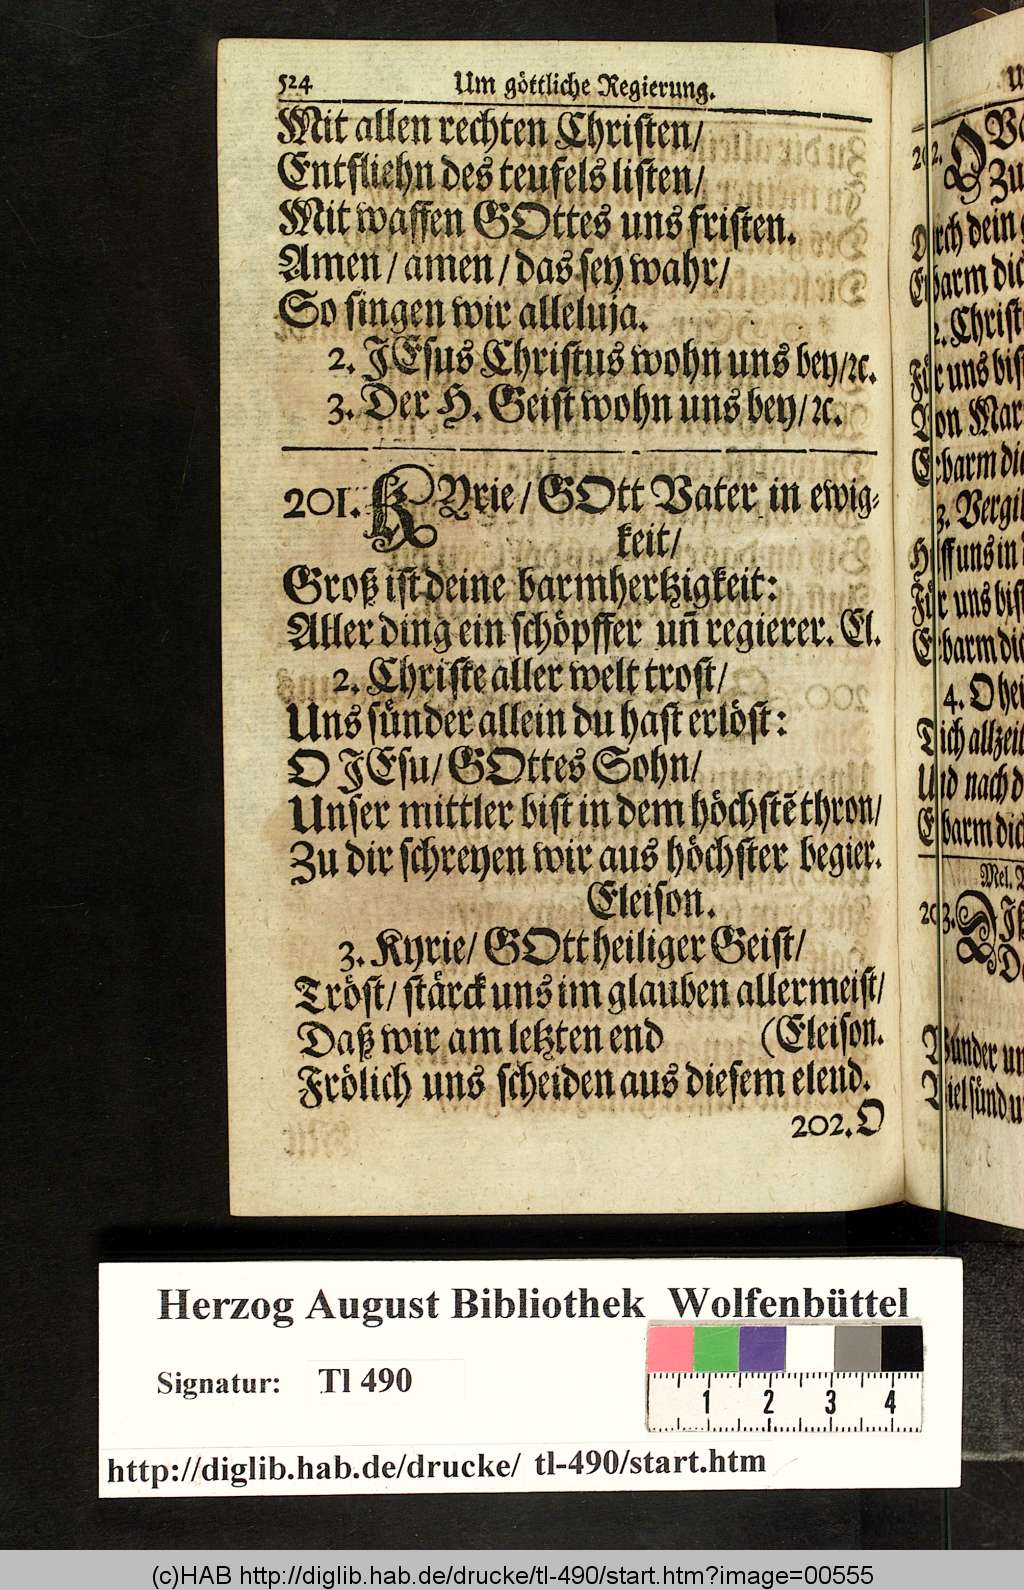 524 Um göttliche Regierung.
Mit allen rechten Christen/
Entfliehn des teufels listen/
Mit waffen GOttes uns fristen.
Amen/ amen/ das sey wahr/
So singen wir alleluja.
2. JEsus Christus wohn uns bey/ꝛc.
3. Der H. Geist wohn uns bey/ꝛc.
201. KYrie/ GOtt Vater in ewig-
keit/
Groß ist deine barmhertzigkeit:
Aller ding ein schöpffer uñ regierer. El.
2. Christe aller welt trost/
Uns sünder allein du hast erlöst:
O JEsu/ GOttes Sohn/
Unser mittler bist in dem höchstē thron/
Zu dir schreyen wir aus höchster begier.
Eleison.
3. Kyrie/ GOtt heiliger Geist/
Tröst/ stärck uns im glauben allermeist/
Daß wir am letzten end (Eleison.
Frölich uns scheiden aus diesem elend.
202. O
2. Christ
Für uns bis
Von Mar
3. Vergi
Für uns bis
4. O hei
Und nach d
Mel.
Herzog August Bibliothek Wolfenbüttel
Signatur: Tl 490
1 2 3 4
http://diglib.hab.de/drucke/ tl-490/start.htm
(c)HAB http://diglib.hab.de/drucke/tl-490/start.htm?image=00555